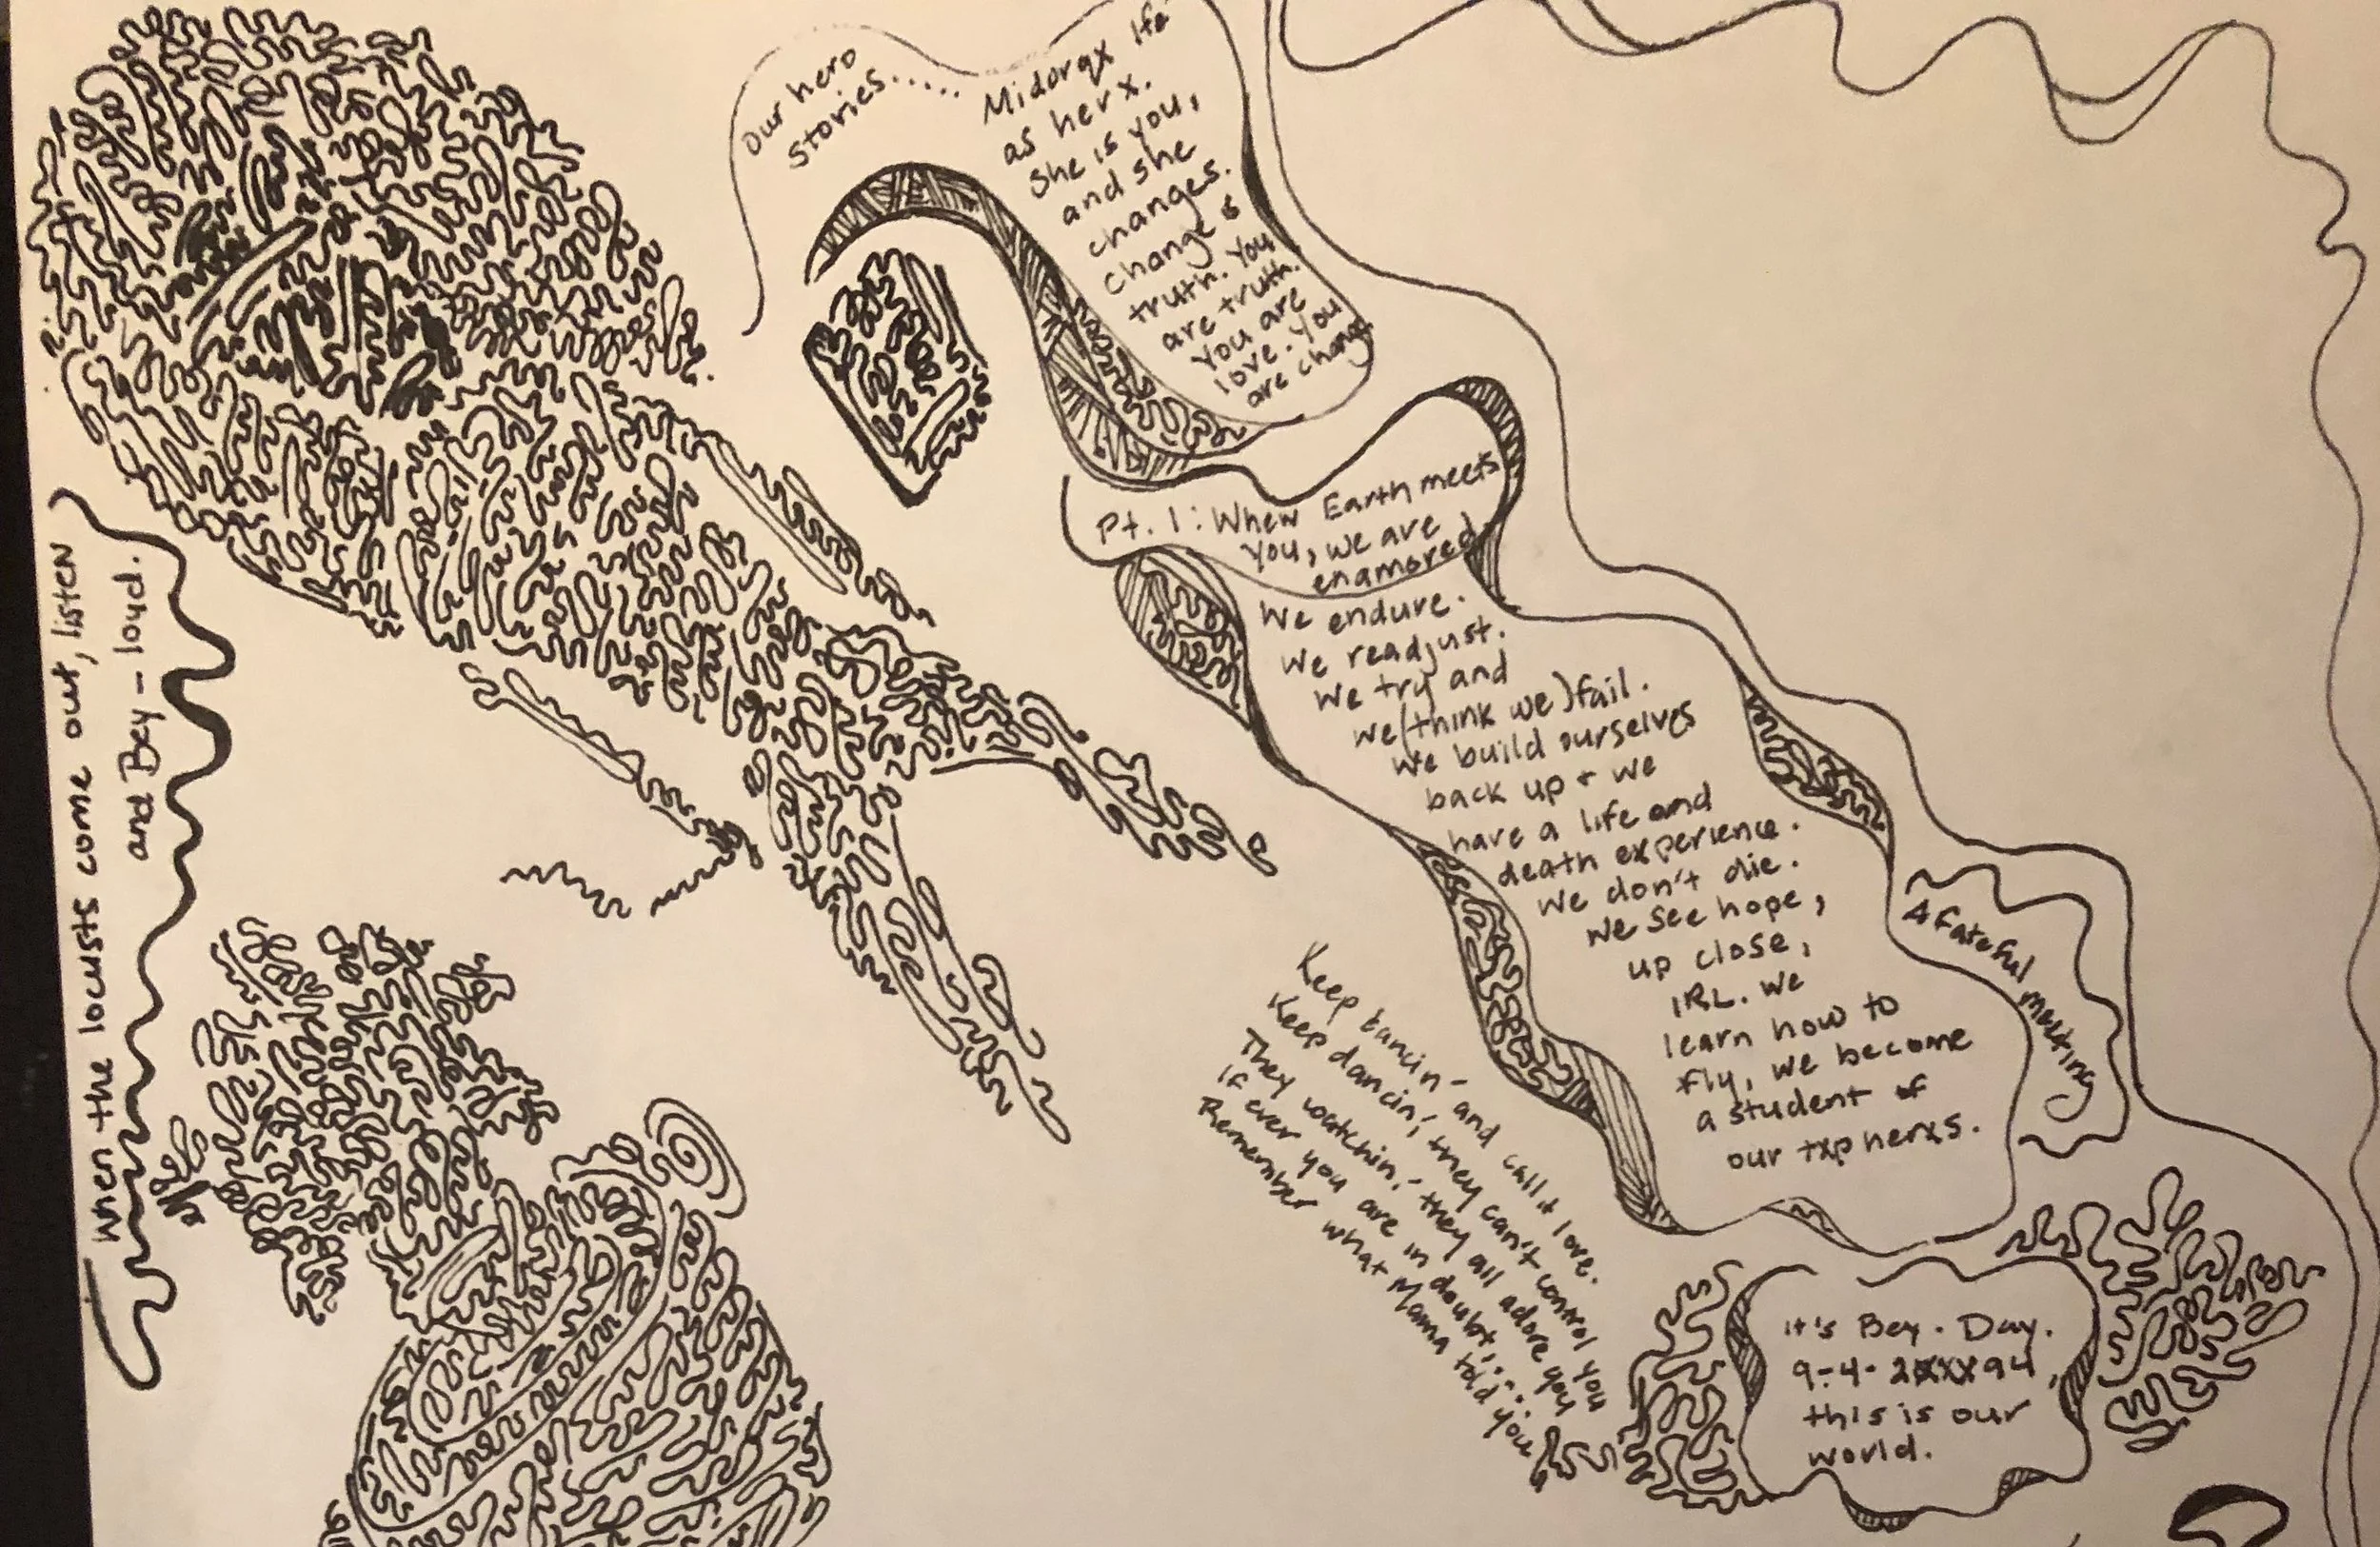 Our hero
Stories.....
Midorgx life
as herx.
She is you,
and she
changes.
Change is
truth. You
are truth.
You are
love. You
are change
Pt. 1: When Earth meets
you, we are
enamored
We endure.
We readjust.
We try and
we (think we) fail.
We build ourselves
back up + we
have a life and
death experience.
We don't die.
We see hope,
up close,
IRL. We
learn how to
fly, we become
a student of
our txp herxs.
A fateful meeting
When the locusts come out, listen
and Bey - loud.
Keep bancin' and call it love.
Keep dancin', they can't control you
They watchin', they all adore you
If ever you are in doubt....
Remember what Mama told you
It's Bey. Day.
9-4-2xxx94,
this is our
world.